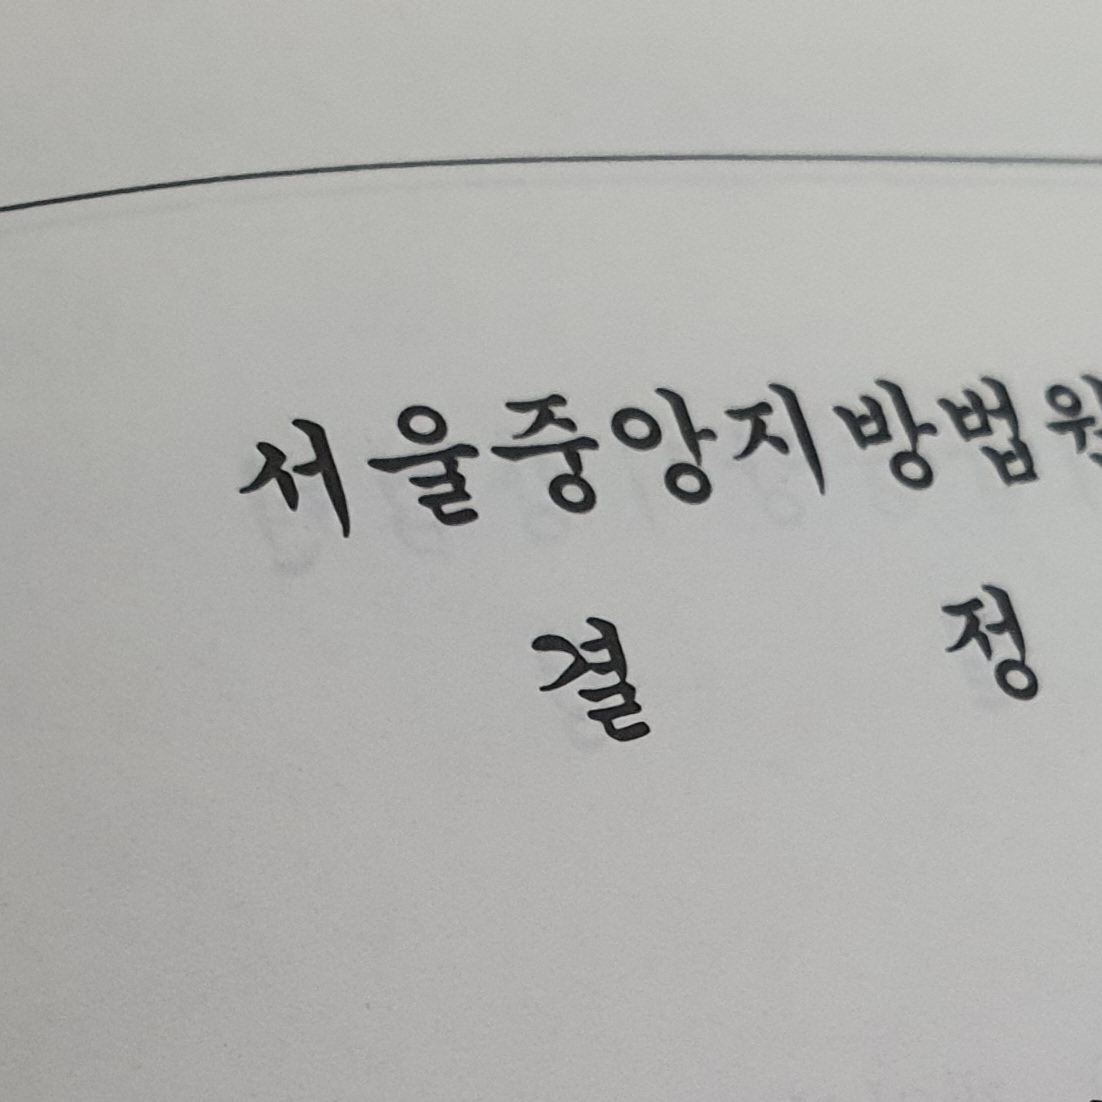 서울중앙지방법원
결 정